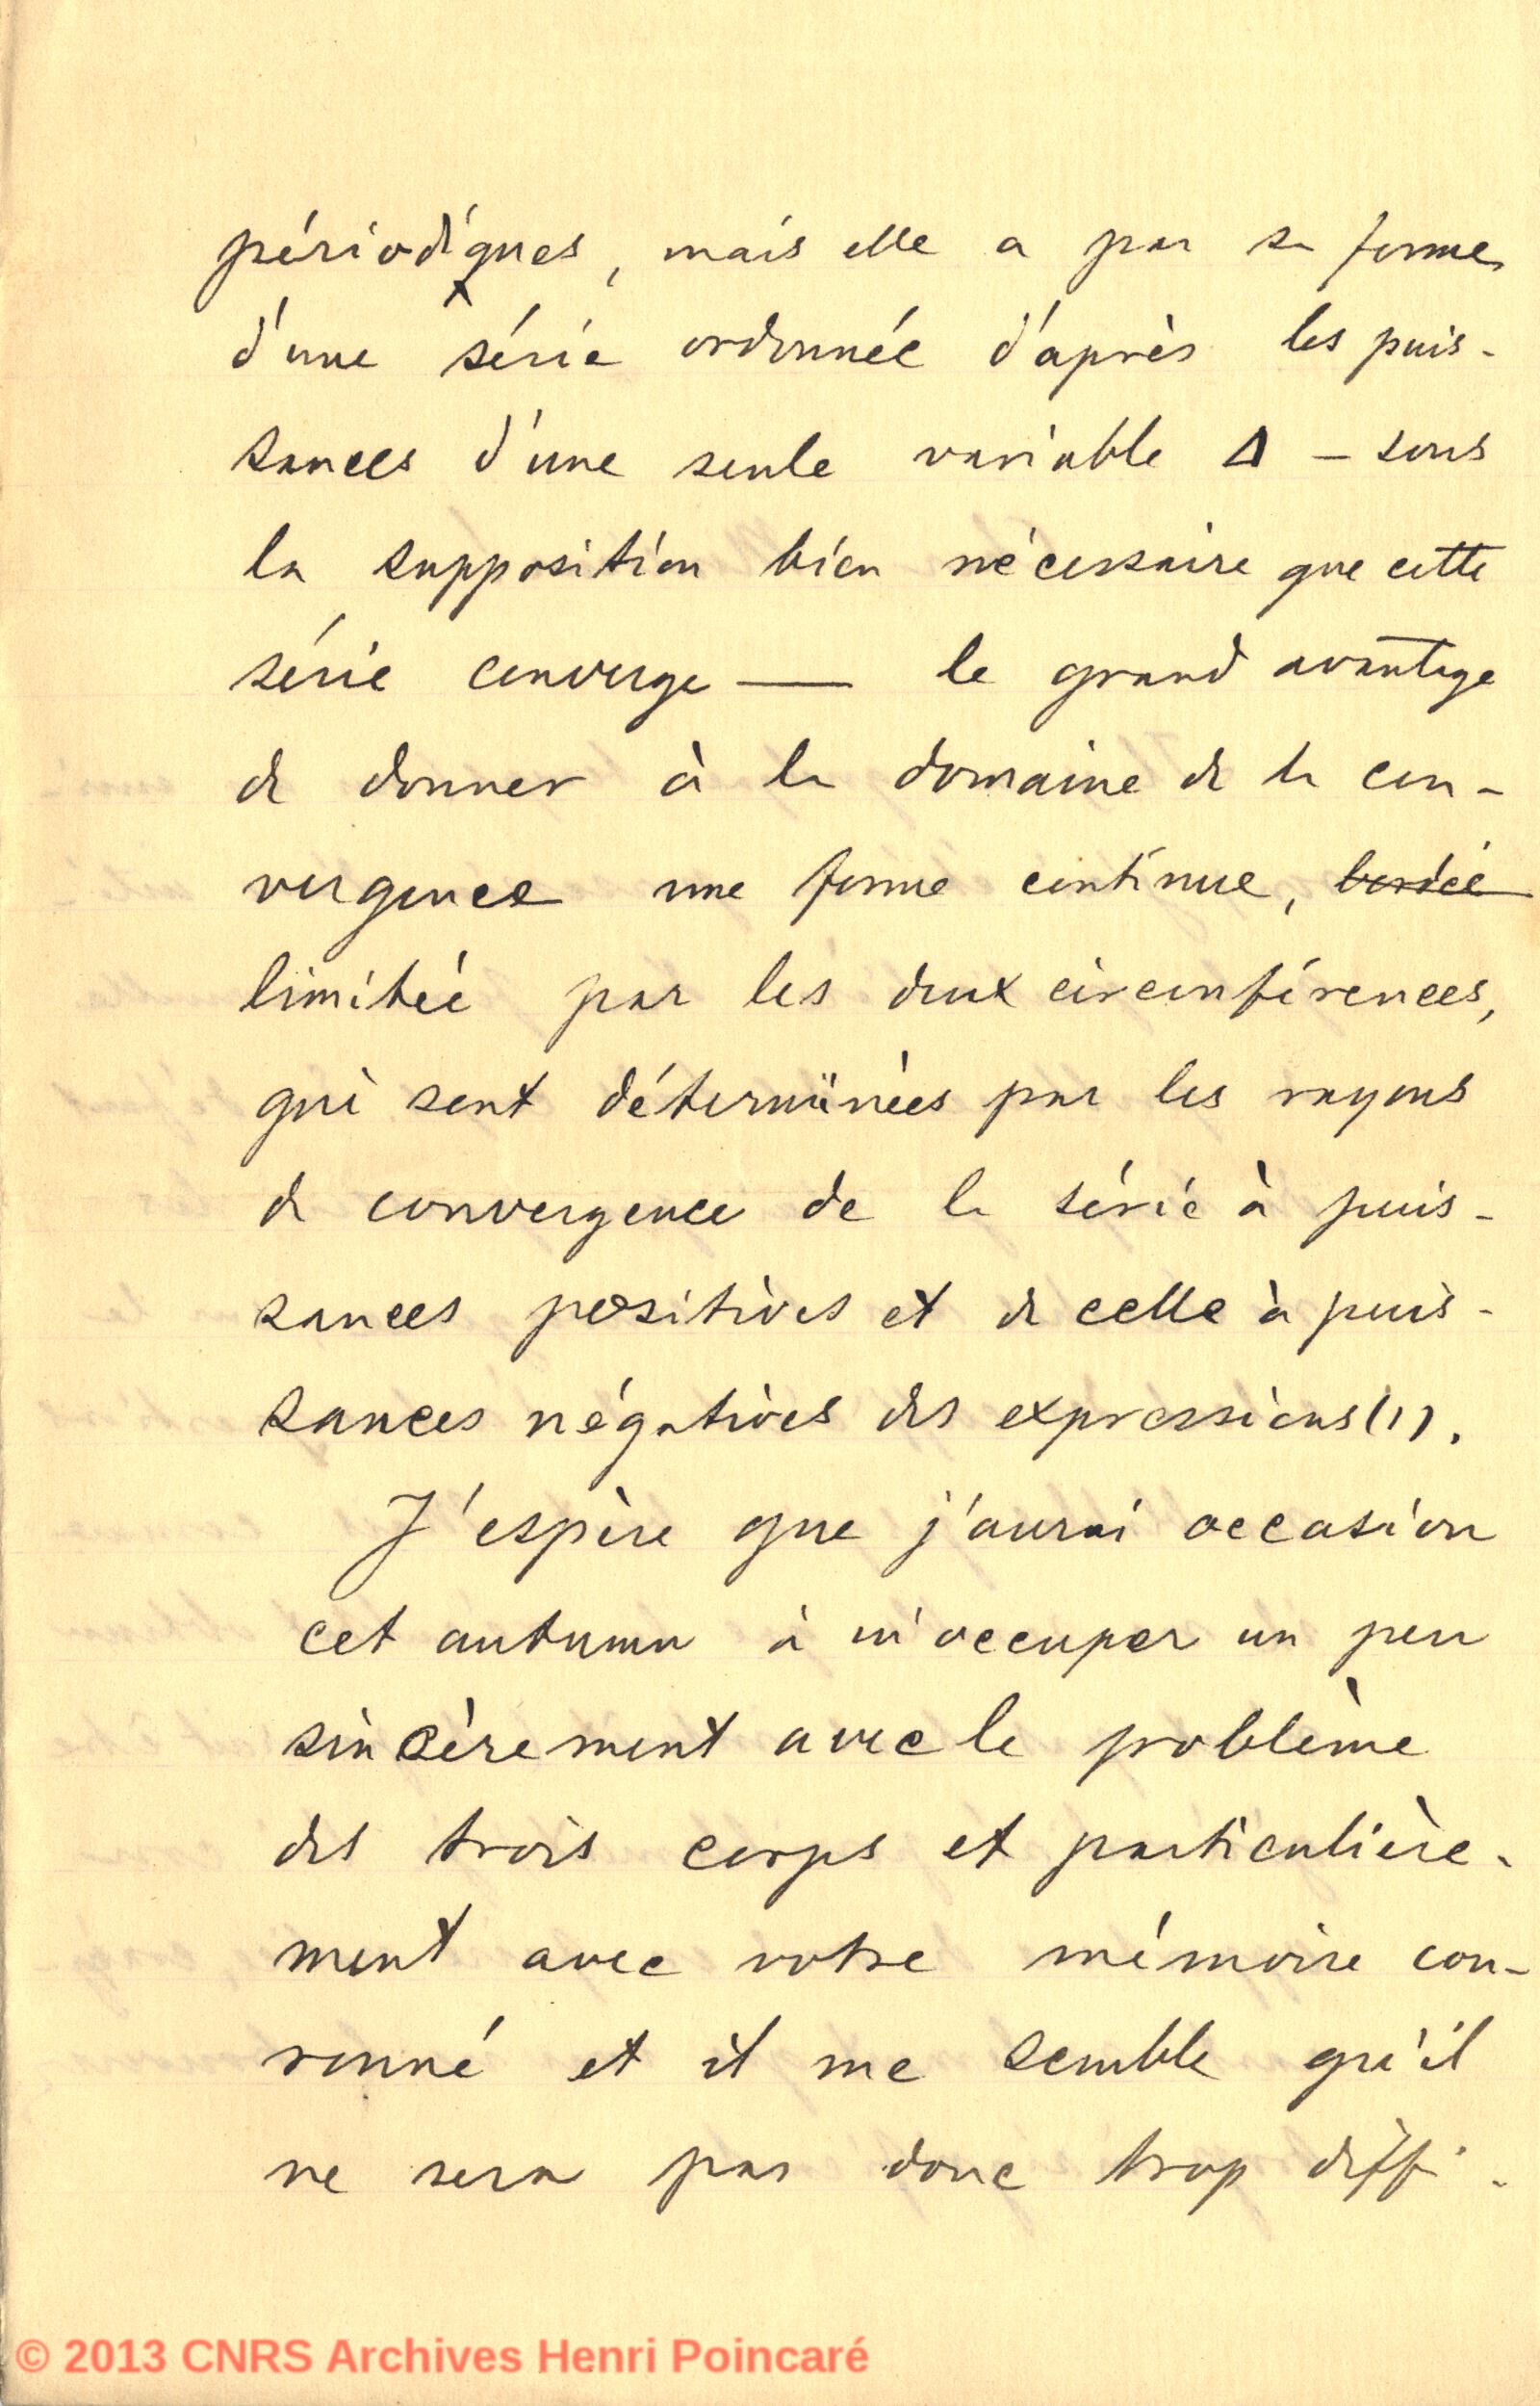 périodiques, mais elle a par sa forme
d'une série ordonnée d'après les puis-
sances d'une seule variable Δ – sous
la supposition bien nécessaire que cette
série converge — le grand avantage
de donner à la domaine de la con-
vergence une forme continue, bordée
limitée par les deux circonférences,
qui sont déterminées par les rayons
de convergence de la série à puis-
sances positives et de celle à puis-
sances négatives des expressions (1).
J'espère que j'aurai occasion
cet autumn à m'occuper un peu
sincèrement avec le problème
des trois corps et particulière-
ment avec votre mémoire cou-
ronné et il me semble qu'il
ne sera pas donc trop diffi-
© 2013 CNRS Archives Henri Poincaré